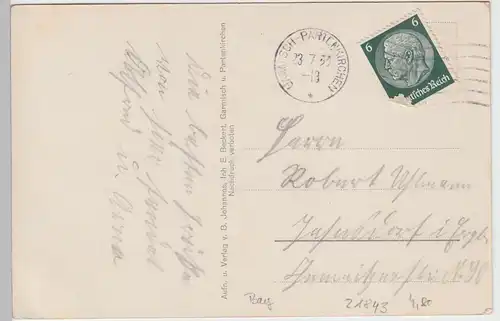 Die besten Grüße
von hier sendet
u. Anna
Aufn. u. Verlag v. B. Johannes, Inh. E. Beckert, Garmisch u. Partenkirchen
Nachdruck verboten
GARMISCH-PARTENKIRCHEN
23.7.
-19
6 6
Deutsches Reich
Herrn
Robert Uhlmann
Jahnsdorf i. Erzgb.
Chemnitzerstr.
Bay
21843 4,80